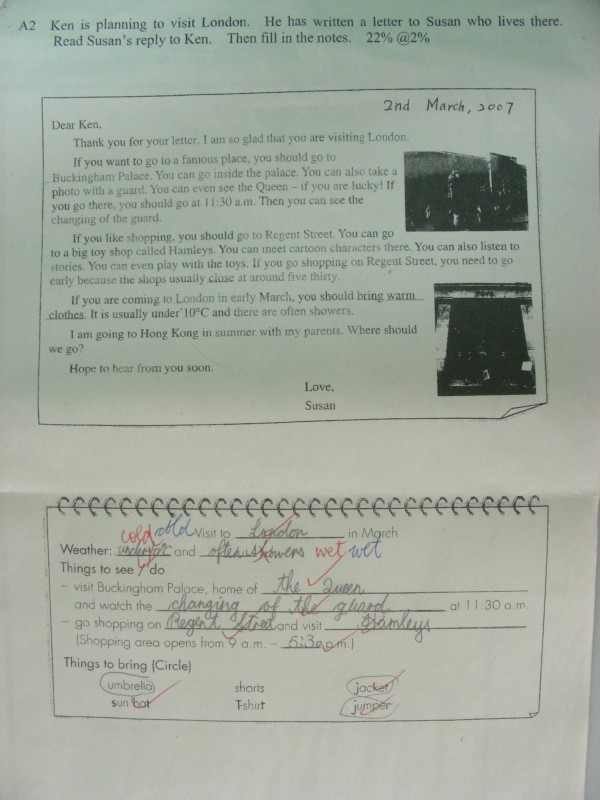 A2 Ken is planning to visit London. He has written a letter to Susan who lives there.
Read Susan's reply to Ken. Then fill in the notes. 22% @2%
2nd March, 2007
Dear Ken,
Thank you for your letter. I am so glad that you are visiting London.
If you want to go to a famous place, you should go to
Buckingham Palace. You can go inside the palace. You can also take a
photo with a guard. You can even see the Queen – if you are lucky! If
you go there, you should go at 11:30 a.m. Then you can see the
changing of the guard.
If you like shopping, you should go to Regent Street. You can go
to a big toy shop called Hamleys. You can meet cartoon characters there. You can also listen to
stories. You can even play with the toys. If you go shopping on Regent Street, you need to go
early because the shops usually close at around five thirty.
If you are coming to London in early March, you should bring warm
clothes. It is usually under 10°C and there are often showers.
I am going to Hong Kong in summer with my parents. Where should
we go?
Hope to hear from you soon.
Love,
Susan
cold cold Visit to London in March
Weather: under 10°C and often showers wet wet
Things to see / do
– visit Buckingham Palace, home of the Queen
and watch the changing of the guard at 11:30 a.m.
– go shopping on Regent Street and visit Hamleys
(Shopping area opens from 9 a.m. – 5:30 p.m.)
Things to bring (Circle)
umbrella shorts jacket
sun hat T-shirt jumper